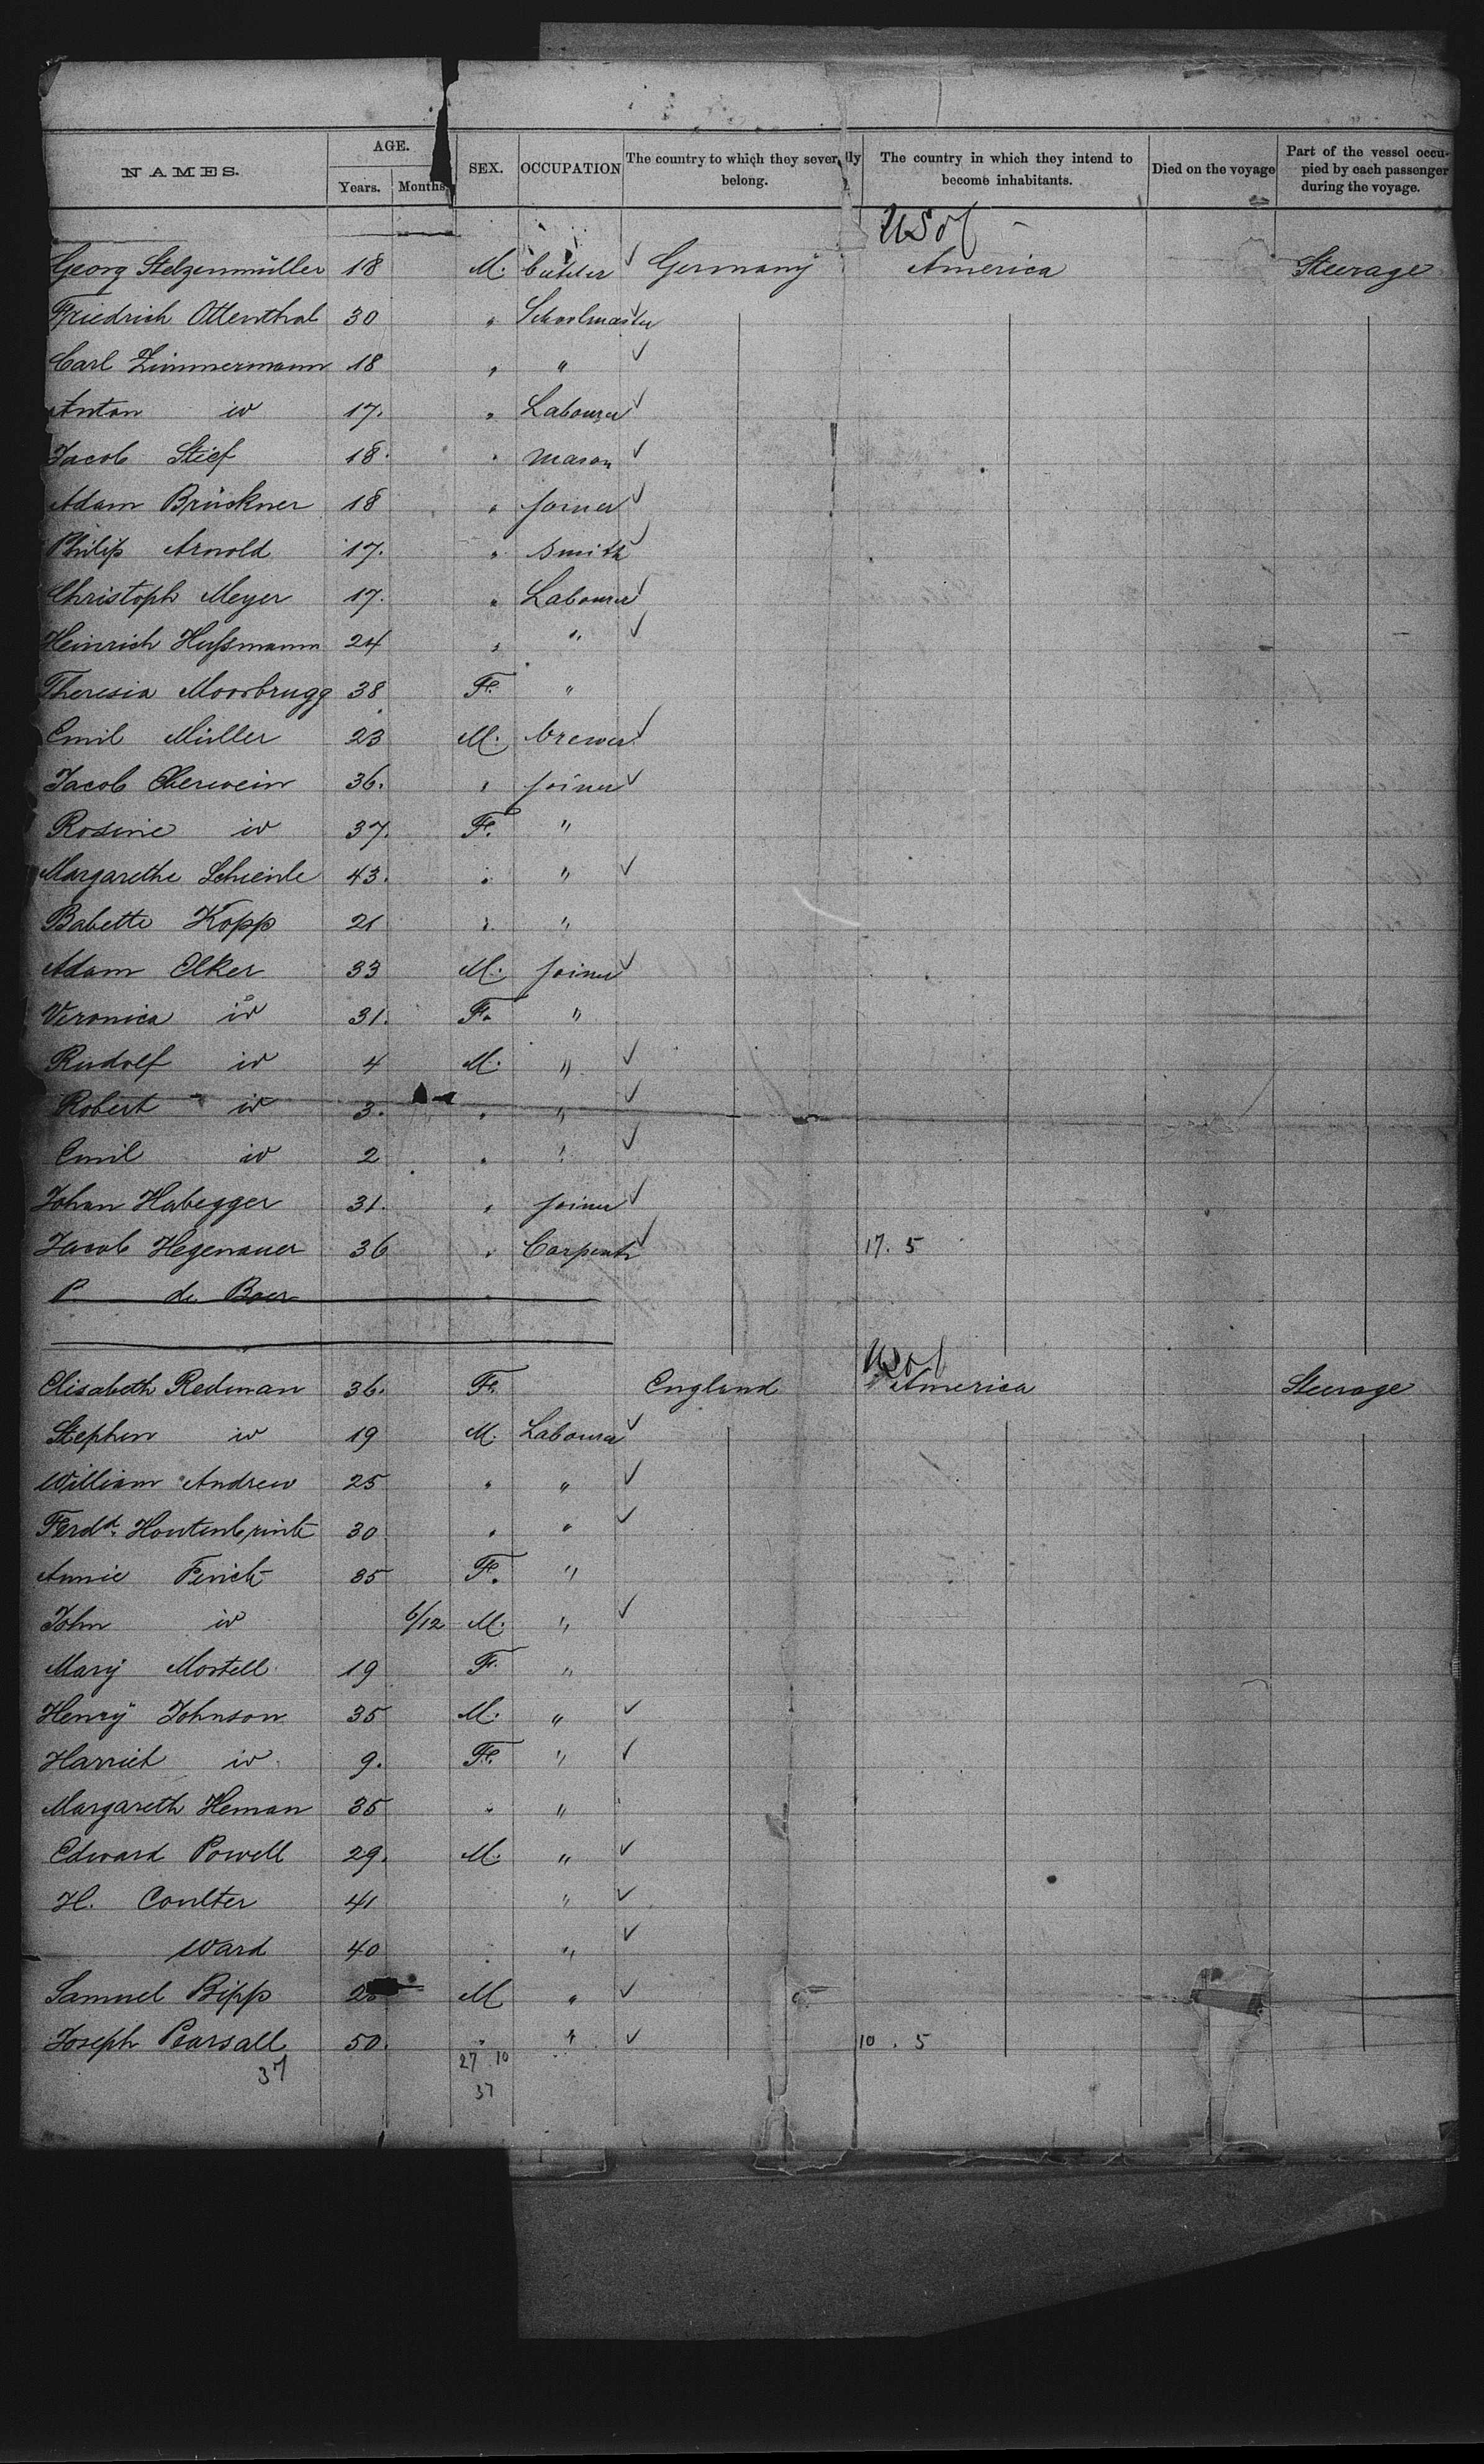 NAMES. AGE. Years. Months SEX. OCCUPATION The country to which they severally belong. The country in which they intend to become inhabitants. Died on the voyage Part of the vessel occupied by each passenger during the voyage.
US of
Georg Stelzenmüller 18 M. Germany America Steerage
Friedrich Ottenthal 30 " Schoolmaster ✓
Carl Zimmermann 18 " " ✓
Anton id 17. " Labourer ✓
Jacob Stief 18. " mason ✓
Adam Brückner 18 " joiner ✓
Philip Arnold 17. " smith ✓
Christoph Meyer 17. " Labourer ✓
Heinrich Hußmann 24 " " ✓
Theresia Moosbrugg 38 F. "
Emil Müller 23 M. brewer ✓
Jacob Oberwein 36. " joiner ✓
Rosine id 37. F. "
Margarethe Schienle 43. " " ✓
Babette Kopp 21 " "
Adam Elker 33 M. joiner ✓
Veronica id 31. F. "
Rudolf id 4 M. " ✓
Robert id 3. " " ✓
Emil id 2 " " ✓
Johan Habegger 31. " joiner ✓
Jacob Hegenauer 36 " Carpentr ✓ 17. 5
P de Boer
US of
Elisabeth Redman 36. F. England America Steerage
Stephen id 19 M. Labourer ✓
William Andrew 25 " " ✓
Ferdd. 30 " " ✓
Annie Finch 35 F. "
John id 6/12 M. " ✓
Mary Mortell 19 F. "
Henry Johnson 35 M. " ✓
Harriet id 9. F. " ✓
Margareth Heman 35 " "
Edward Powell 29. M. " ✓
H. Coulter 41 " ✓
Ward 40 " ✓
Samuel Bipp M " ✓
Joseph Pearsall 50. " " ✓ 10. 5
37 27 10
37